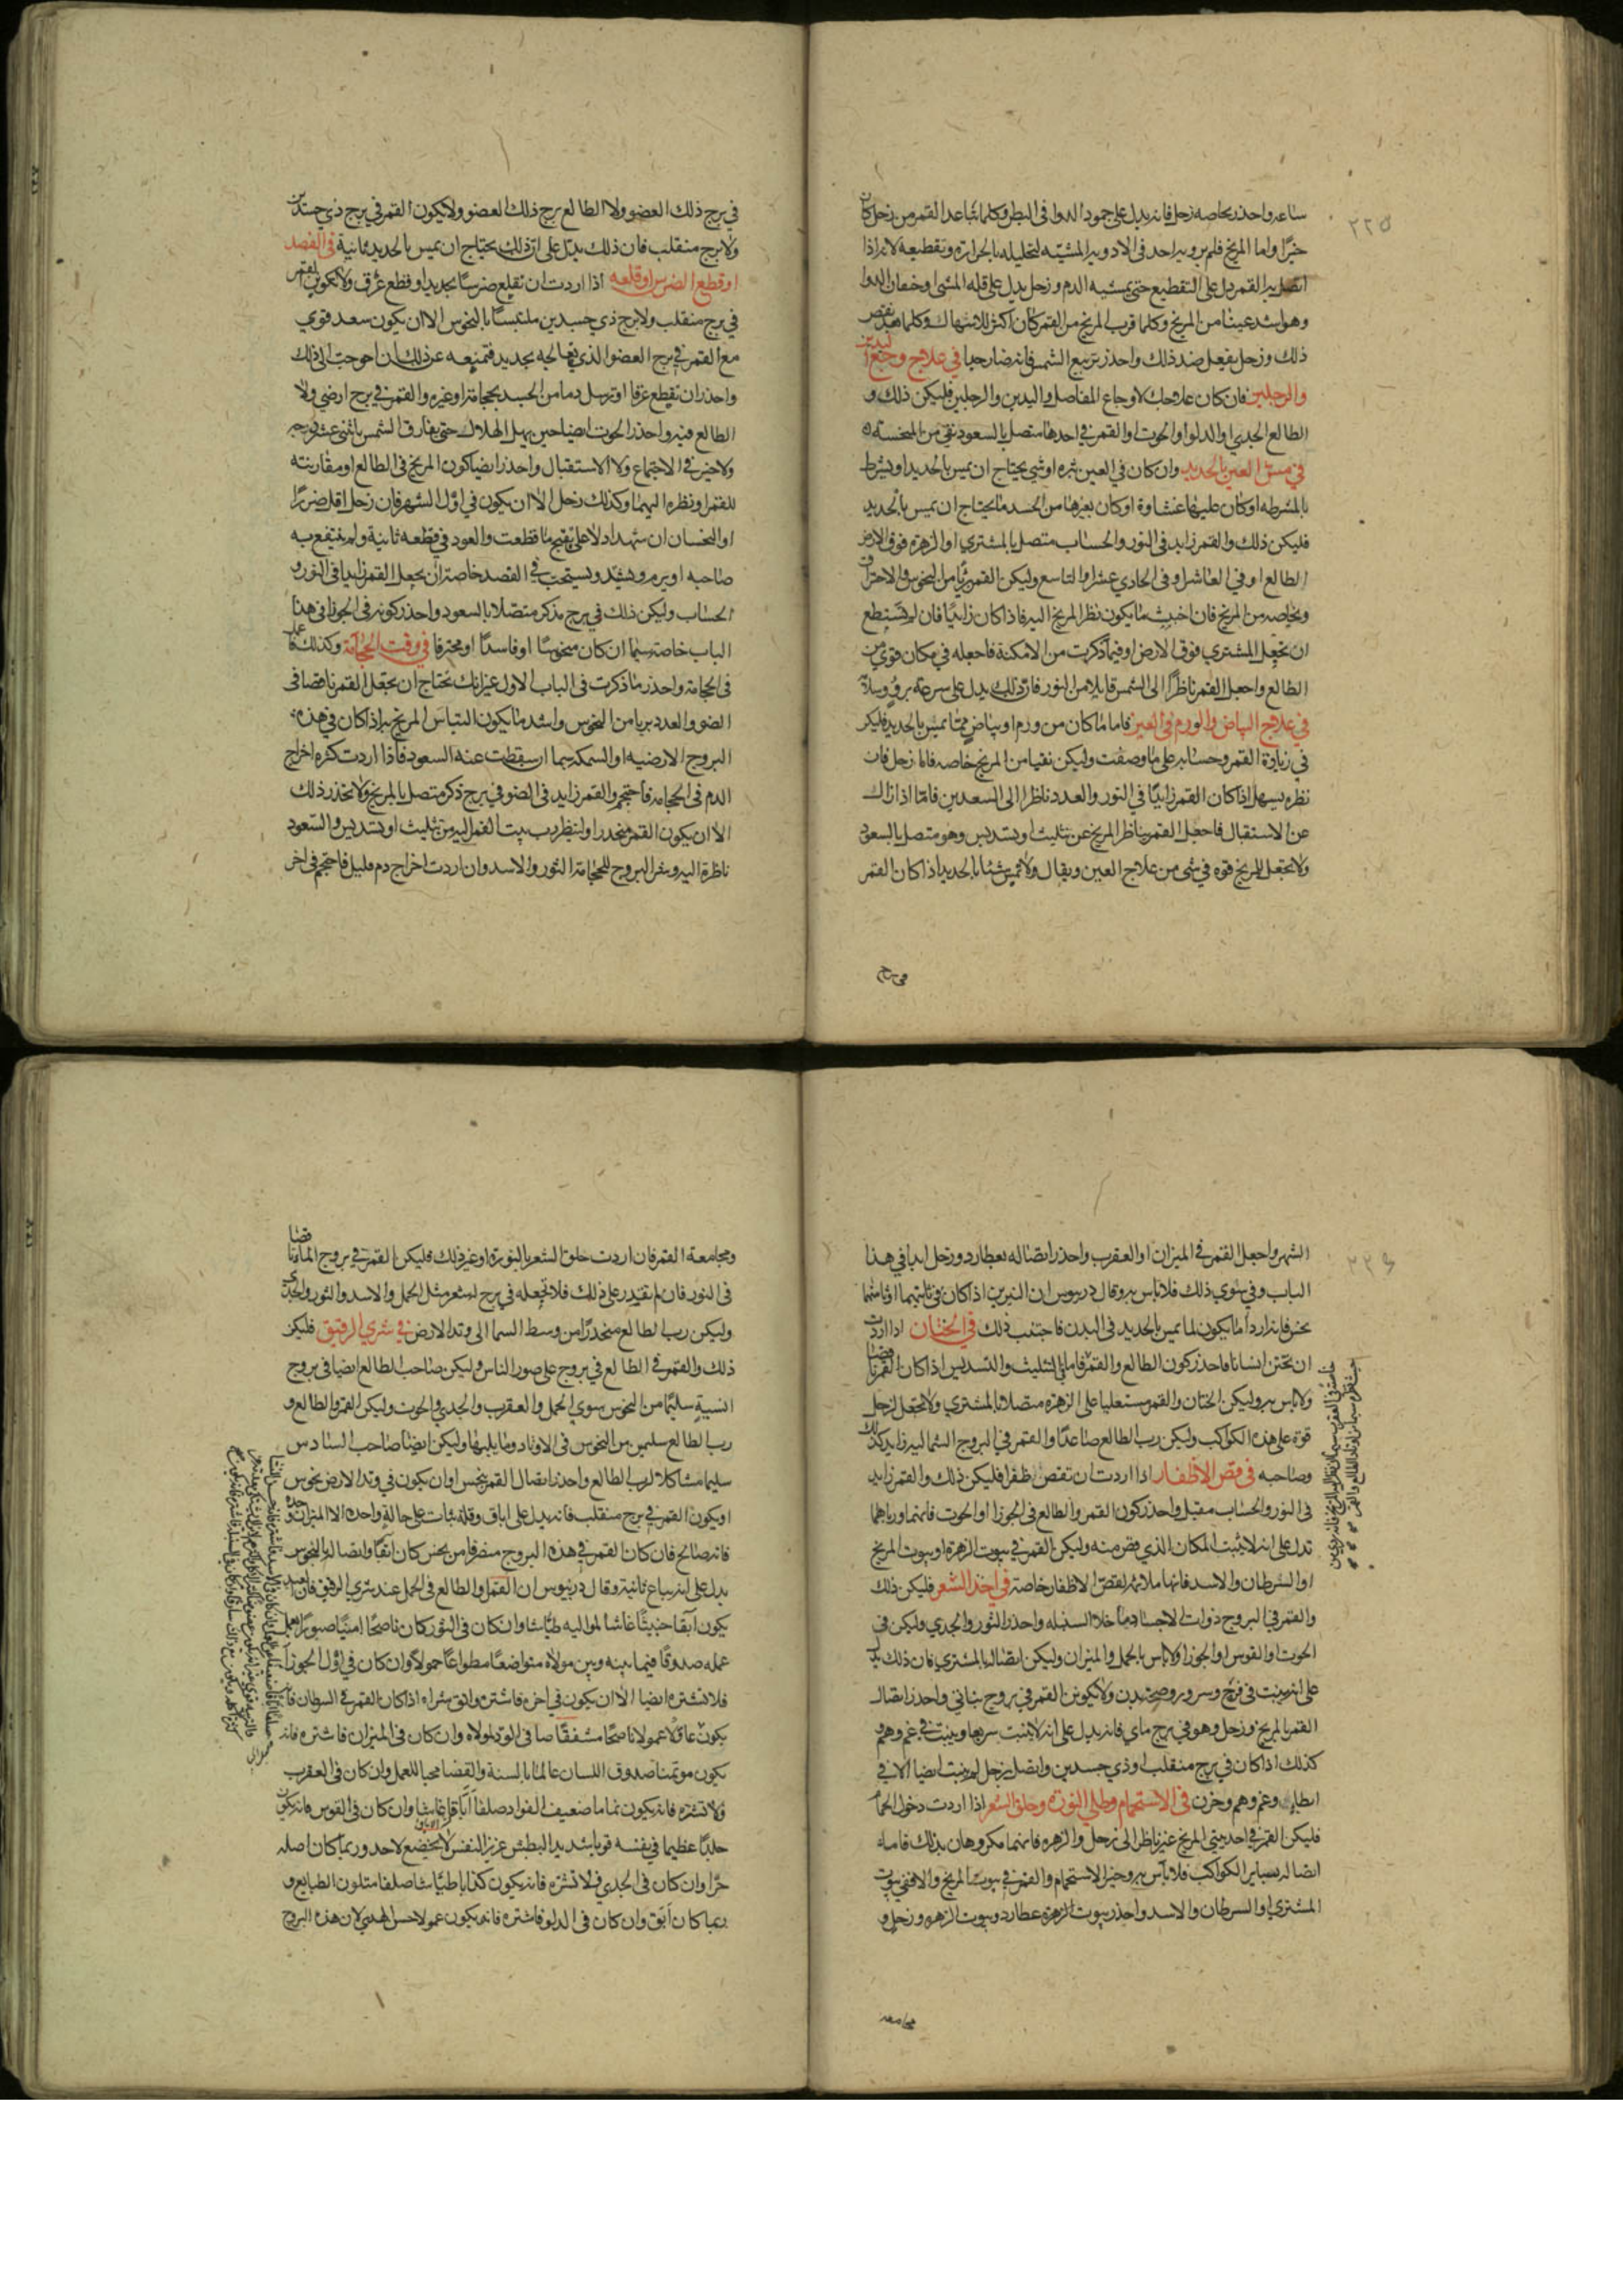 ٢٢٥
ساعه واحذر بخاصه زحل فانه يدل على جمود الدوا فى البطن وكلما تباعد القمر من زحل كان
خيرًا واما المريخ فلم يرو به احد فى الادويه المشيّه لتحليله بالحرارة وتقطيعه لانه اذا
اتصل به القمر دل على التقطيع حتى يمشيه الدم وزحل يدل على قله المشى او خفقان الدوا
وهو اشد عيثا من المريخ وكلما قرب المريخ من القمر كان اكثر للاسهال وكلما بعد نقص
ذلك وزحل يفعل ضد ذلك واحذر تربيع الشمس فانه ضار جدا في علاج وجع اليدين
والرجلين فان كان علاجك لاوجاع المفاصل واليدين والرجلين فليكن ذلك و
الطالع الجدي او الدلو او الحوت او القمر فى احدها متصل بالسعود نقى من المنحسه
في مسّ العين بالحديد وان كان في العين بثره او شي يحتاج ان يمس بالحديد او يشرط
بالمشرطه او كان عليها غشاوة او كان بغيرها من الجسد ما يحتاج ان يمس بالحديد
فليكن ذلك والقمر زايد فى النور والحساب متصل بالمشتري او الزهره فوق الارض
الطالع او في العاشر او فى الحادي عشر او التاسع وليكن القمر بريًا من النحوس والاحتراق
وبخاصه من المريخ فان اخبث ما يكون نظر المريخ اليه فاذا كان زايدًا فان لم تستطع
ان تجعل المشتري فوق الارض او فيما ذكرت من الامكنة فاجعله في مكان قوي من
الطالع واجعل القمر ناظرًا الى الشمس قابلا من النور فان ذلك يدل على سرعة بروٍ وسلامة
في علاج البياض والورم فى العين فاما ما كان من ورم او بياض مما يمس بالحديد فليكن
في زيادة القمر وحسابه على ما وصفت وليكن نقيا من المريخ خاصه فاما زحل فان
نظره يسهل اذا كان القمر زايدًا في النور والعدد ناظرا الى السعدين فاما اذا زال
عن الاستقبال فاجعل القمر يناظر المريخ عن تثليث او تسديس وهو متصل بالسعود
ولا تجعل للمريخ قوه في شى من علاج العين ويقال ولا تمس شئا بالحديد اذا كان القمر
فى برج
في برج ذلك العضو ولا الطالع برج ذلك العضو ولا يكون القمر في برج ذي جسدين
ولا برج منقلب فان ذلك يدل على ان ذلك يحتاج ان يمس بالحديد ثانية فى الفصد
او قطع الضرس او قلعه اذا اردت ان تقلع ضرسا بحديد او قطع عرق ولا يكون القمر
في برج منقلب ولا برج ذي جسدين ملتبسًا بالنحوس الا ان يكون سعد قوي
مع القمر في برج العضو الذي تعالجه بحديد فتمنعه عن ذلك ان احوجت الى ذلك
واحذر ان تقطع عرقا او ترسل دما من الجسد بحجامة او غيره والقمر في برج ارضي ولا
الطالع فيه واحذر الحوت ايضا حين يهل الهلال حتى يفارق الشمس باثني عشر درجه
ولا خير في الاجتماع ولا الاستقبال واحذر ايضا كون المريخ فى الطالع او مقارنته
للقمر او نظره اليهما وكذلك زحل الا ان يكون في اوّل الشهر فان زحل اقل ضررًا
او النحسان ان شهدا دلا على تقيح ما قطعت والعود في قطعه ثانية ولم ينتفع به
صاحبه او يرم ويشتد ويستحب في الفصد خاصة ان يجعل القمر زايدا فى النور و
الحساب وليكن ذلك في برج مذكر متصلا بالسعود واحذر كونه فى الجوزا فى هذا
الباب خاصة سيما ان كان منحوسًا او فاسدًا او محترقا في وقت الحجامة وكذلك
فى الحجامة واحذر ما ذكرت فى الباب الاول غير انك تحتاج ان تجعل القمر ناقصا فى
الضو والعدد بريا من النحوس واشد ما يكون التباس المريخ به اذا كان في هذه
البروج الارضيه او السمكه سيما ان سقطت عنه السعود فاذا اردت كثره اخراج
الدم فى الحجامه فاحتجم والقمر زايد فى الضو في برج ذكر متصل بالمريخ ولا تحذر ذلك
الا ان يكون القمر منحدرا ولينظر رب بيت القمر اليه من تثليث او تسديس والسعود
ناظرة اليه وشر البروج للحجامة الثور والاسد وان اردت اخراج دم قليل فاحتجم فى اخر
٢٢٦
الشهر واجعل القمر فى الميزان او العقرب واحذر اتصاله بعطارد وزحل ابدا في هذا
الباب وفي سوي ذلك فلا باس به وقال دريوس ان النيرين اذا كان فى ثالثيهما او ثامنهما
نحس فانه اردأ ما يكون لما يمس بالحديد فى البدن فاجتنب ذلك في الختان اذا اردت
ان تختن انسانا فاحذر كون الطالع والقمر فاما بالتثليث والتسديس اذا كان القمر ناقصا
ولا باس به وليكن الختان والقمر مستعليا على الزهره متصلا بالمشتري ولا تجعل لزحل
قوة على هذه الكواكب وليكن رب الطالع صاعدًا والقمر في البروج الشماليه زايد كذلك
وصاحبه فى قص الاظفار اذا اردت ان تقص ظفرا فليكن ذلك والقمر زايد
فى النور والحساب مقبل واحذر كون القمر والطالع فى الجوزا او الحوت فانهما وربّاهما
تدل على انه لا يثبت المكان الذي قص منه وليكن القمر في بيوت الزهرة او بيوت المريخ
او السرطان والاسد فانها ملائمه لقصّ الاظفار خاصة في اخذ الشعر فليكن ذلك
والقمر في البروج ذوات الاجساد ما خلا السنبله واحذر الثور والجدي وليكن في
الحوت او القوس او الجوزا ولا باس بالحمل والميزان وليكن اتصاله بالمشتري فان ذلك يدل
على انه ينبت في فرح وسرور وصحة بدن ولا يكونن القمر في بروج بناتي واحذر اتصال
القمر بالمريخ وزحل وهو في برج ماي فانه يدل على انه لا ينبت سريعا وينبت في غم وهم
كذلك اذا كان في برج منقلب او ذي جسدين واتصل بزحل لم ينبت ايضا الا في
ابطاء وغم وهم وحزن فى الاستحمام وطلي النورة وحلق الشعر اذا اردت دخول الحمام
فليكن القمر في احد بيتي المريخ غير ناظر الى زحل والزهره فانهما مكروهان بذلك فاما
اتصاله بساير الكواكب فلا باس به وخير الاستحمام والقمر في بيوت المريخ والا ففي بيوت
المشتري او السرطان والاسد واحذر بيوت الزهرة عطارد وبيوت الزهره وزحل و
مجامعه
ومجامعة القمر فان اردت حلق الشعر بالنورة او غير ذلك فليكن القمر في بروج الما ناقصا
فى النور فان لم تقدر على ذلك فلا تجعله في برج لشعر مثل الحمل والاسد والثور والجدي
وليكن رب الطالع منحدرًا من وسط السما الى وتد الارض في شري الرقيق فليكن
ذلك والقمر في الطالع في بروج على صور الناس وليكن صاحب الطالع ايضا فى بروج
انسيةٍ سليمًا من النحوس سوي الحمل والعقرب والجدي والحوت وليكن القمر والطالع و
رب الطالع سليمين من النحوس فى الاوتاد وما يليها وليكن ايضا صاحب السادس
سليما مشاكلا لرب الطالع واحذر اتصال القمر بنحس او ان يكون في وتد الارض نحوس
او يكون القمر في برج منقلب فانه يدل على اباق وقلة ثبات على حالةٍ واحده الا الميزان وحده
فانه صالح فان كان القمر في هذه البروج منصرفا من نحس كان ابقًا واتصاله بالنحوس
يدل على انه يباع ثانية وقال دريوس ان القمر والطالع فى الحمل عند شري الرقيق فان العبد
يكون آبقا خبيثًا غاشا لمواليه طياشا وان كان فى الثور كان ناصحًا امينًا صبورًا
عمله صدوقًا فيما بينه وبين مولاه متواضعًا مطواعًا حمولا وان كان في اوّل الجوزا
فلا تشتره ايضا الا ان يكون في اخره فاشتره واتق شراه اذا كان القمر في السرطان فانه
يكون عاقلا عمولا ناصحًا مشفقًا صافى الود لمولاه وان كان فى الميزان فاشتره فانه
يكون موتمنا صدوق اللسان عالمًا بالسنة والقضا محبا للعمل وان كان فى العقرب
ولا تشتره فانه يكون نماما ضعيف الفواد صلفًا آبقا غاشا وان كان فى القوس فانه يكون
جلدًا عظيما في نفسه قويا شديد البطش عزيز النفس لا يخضع لاحد وربما كان اصله
حرًا وان كان فى الجدي فلا تشتره فانه يكون كذابا طياشا صلفا متلون الطبايع و
ربما كان آبق وان كان فى الدلو فاشتره فانه يكون عمولا حسن الهدي لان هذه البروج